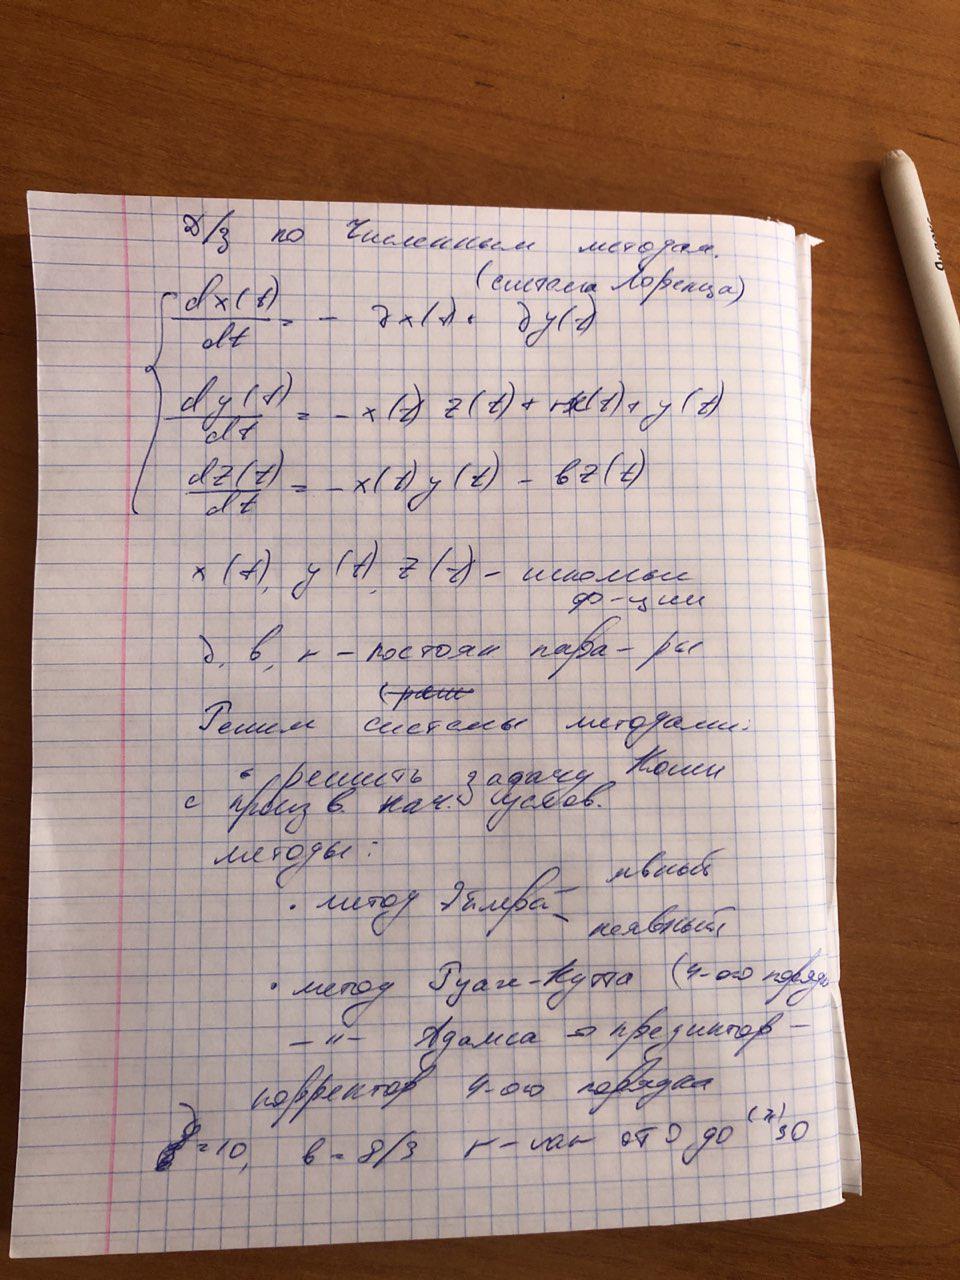 Д/з по Численным методам.
(система Лоренца)
dx(t)/dt = - ∂x(t) · ∂y(t)
dy(t)/dt = -x(t) z(t) + rx(t) + y(t)
dz(t)/dt = -x(t) y(t) - вz(t)
x(t), y(t), z(t) - искомые
ф-ции
∂, в, r - постоян пара-ры
(реш
Решим системы методами:
• решить задачу Коши
с произв. нач. услов.
методы:
явный
• метод Эйлера
неявный
• метод Рунге-Кутта (4-ого порядк
—"— Адамса предиктор -
корректор 4-ого порядка
∂=10, в = 8/3 r - от 0 до 30